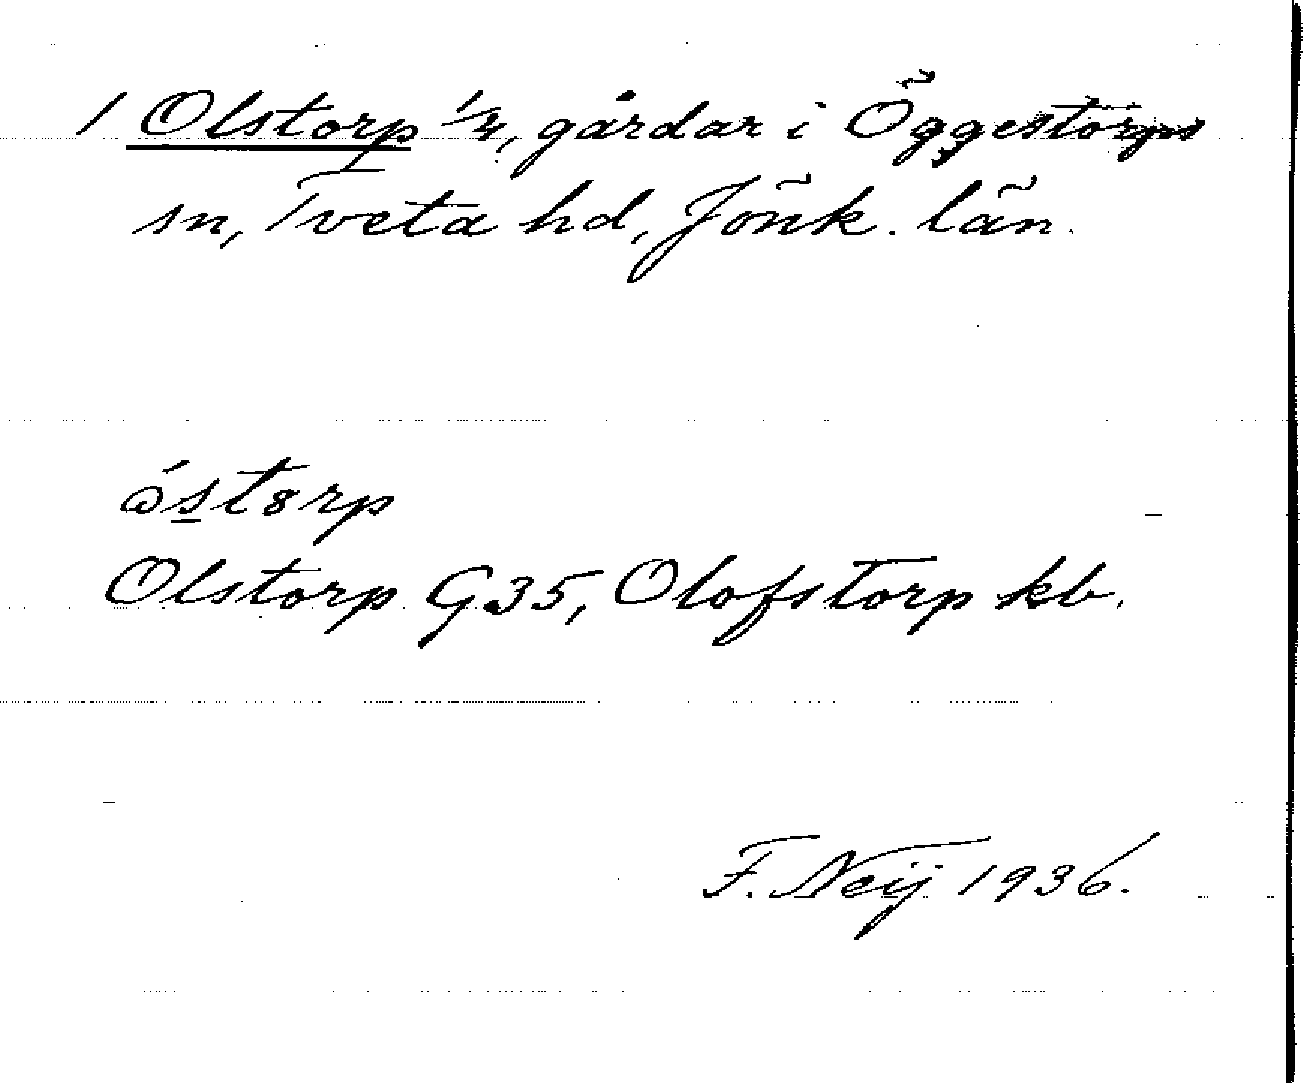 1 Olstorp 1/4, gårdar i Öggestorps
sn, Tveta hd, Jönk. län.
óstorp
Olstorp G35, Olofstorp kb.
F. Neij 1936.